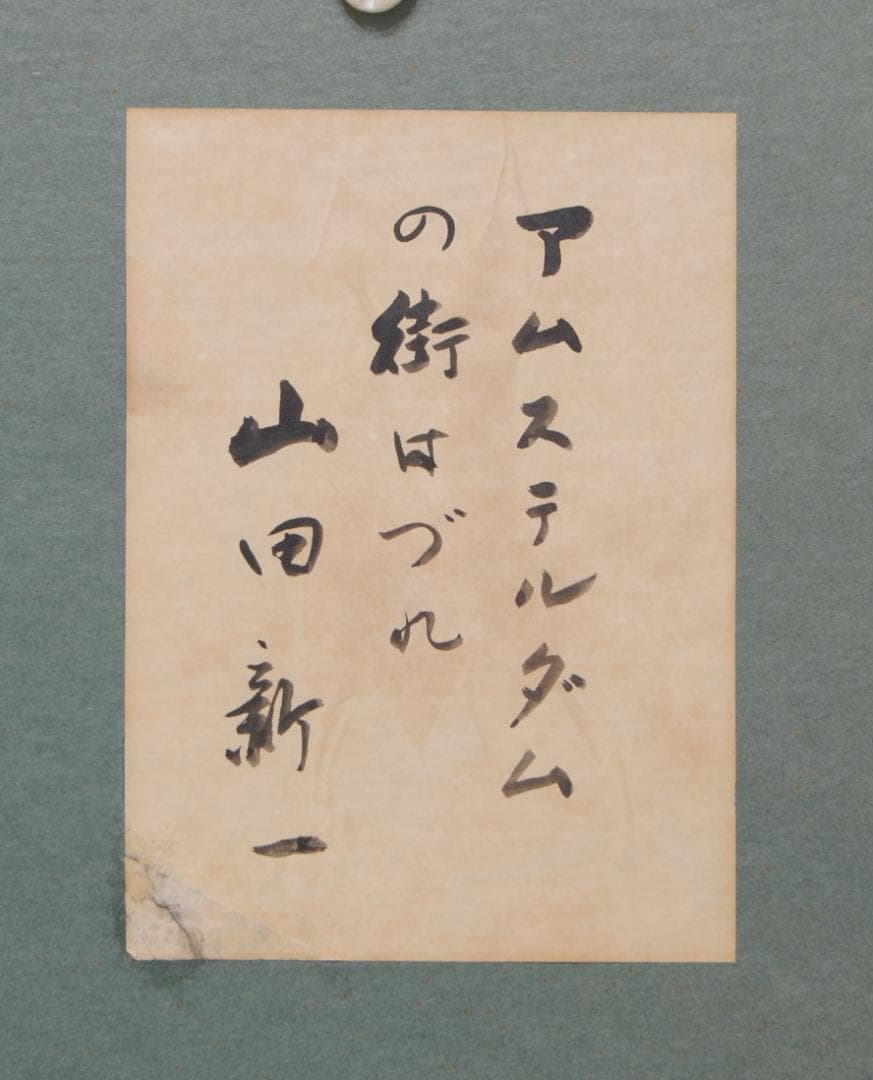 アムステルダム
の街はづれ
山田新一